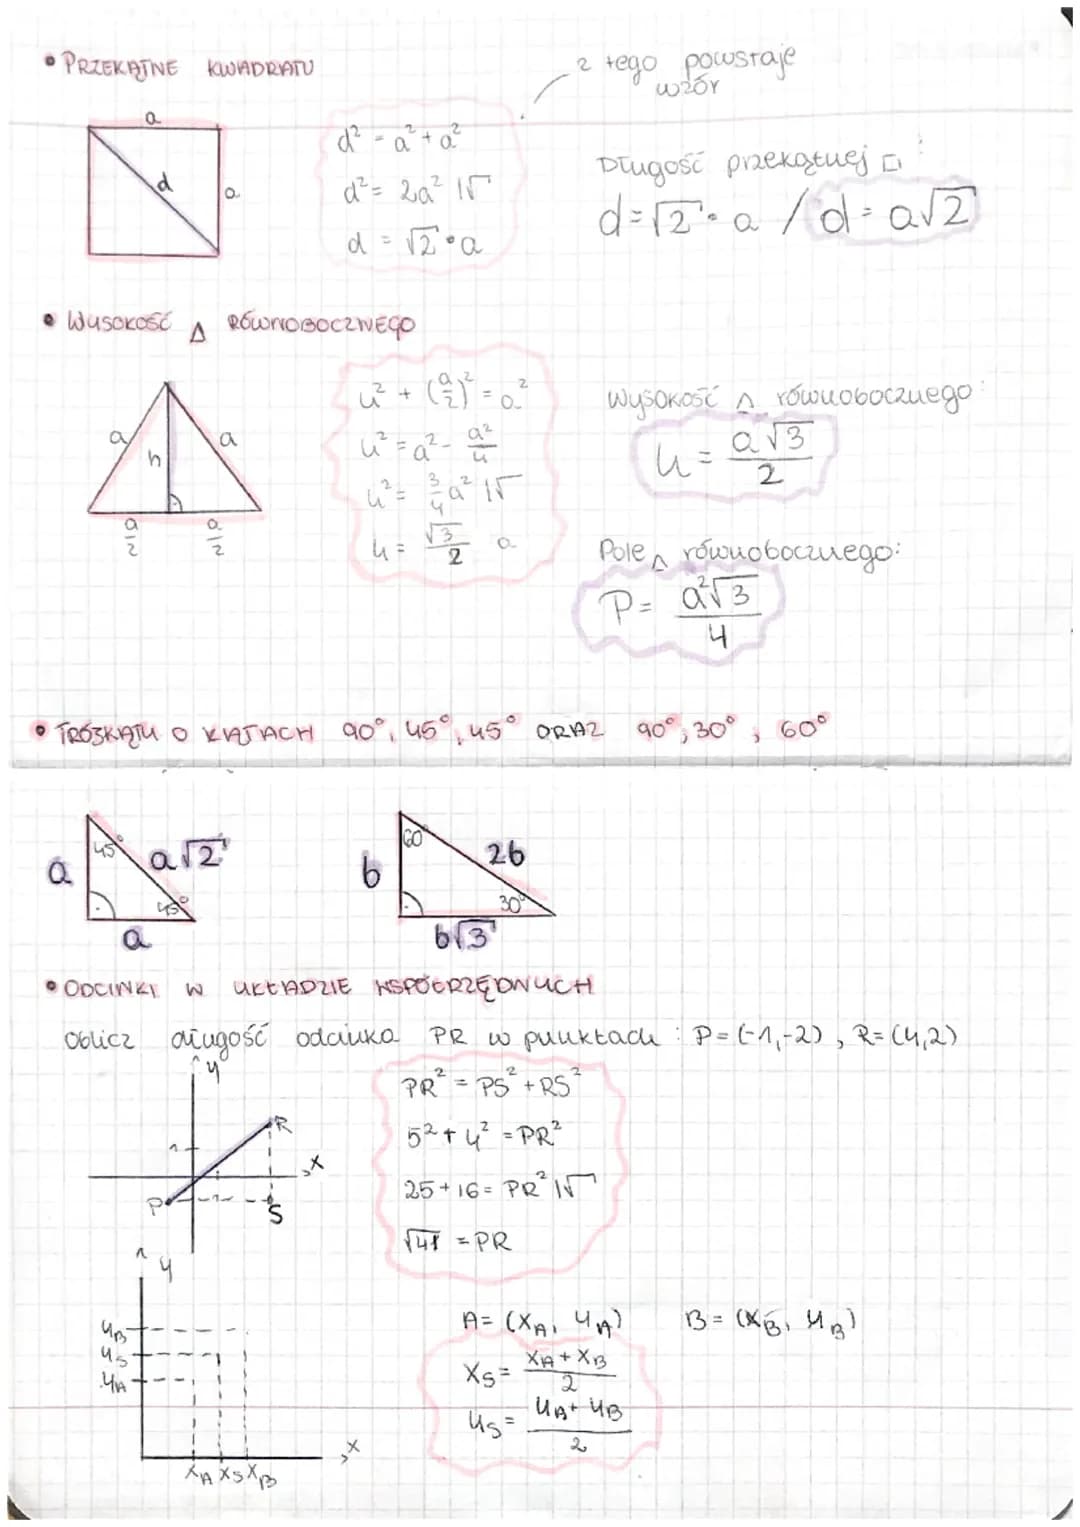 • PRZEKĄTNE KWADRATU
z tego powstaje
wzór
a
d
a
d² = a² + a²
d² = 2a² |√
d = √2 • a
Długość przekątnej □:
d = √2 • a / d = a√2
• WYSOKOŚĆ △ RÓWNOBOCZNEGO
a
a
h
a/2
a/2
h² + (a/2)² = a²
h² = a² - a²/4
h² = 3/4 a² |√
h = √3/2 a
Wysokość △ równobocznego:
h = a√3/2
Pole △ równobocznego:
P = a²√3/4
• TRÓJKĄTY O KĄTACH 90°, 45°, 45° ORAZ 90°, 30°, 60°
45°
a
a√2
45°
a
60°
b
2b
30°
b√3
• ODCINKI W UKŁADZIE WSPÓŁRZĘDNYCH
Oblicz długość odcinka PR w punktach: P = (-1,-2), R = (4,2)
y
R
1
x
P
1
S
PR² = PS² + RS²
5² + 4² = PR²
25 + 16 = PR² |√
√41 = PR
y
yB
yS
yA
xA xS xB
x
A = (xA, yA) B = (xB, yB)
xS = xA + xB/2
yS = yA + yB/2